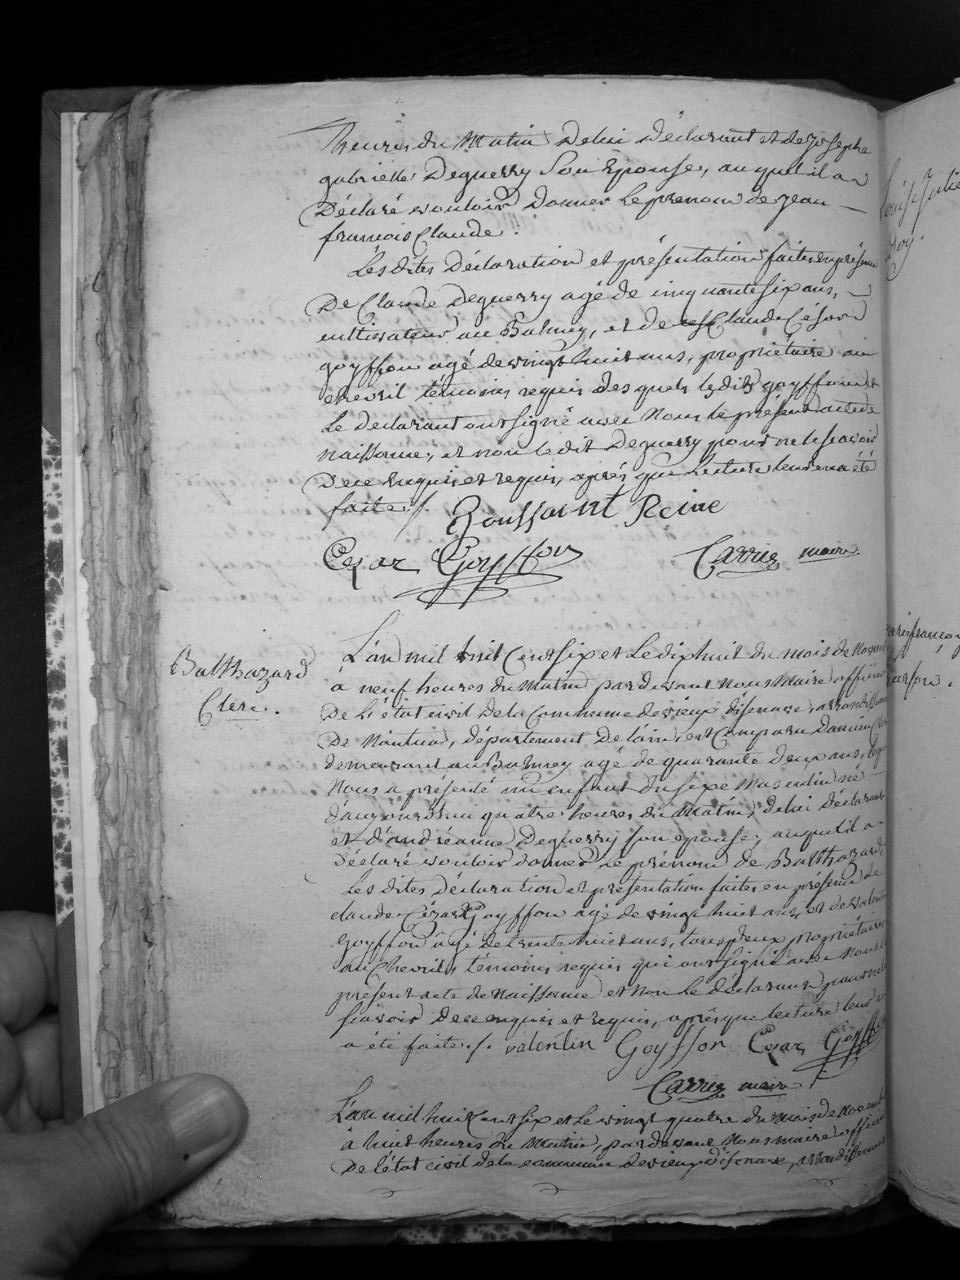 heures du Matin De lui déclarant et de Josephe
gabrielle Deguerry Son Epouse, auquel il a
Déclaré vouloir Donner le prenom de Jean
francois Claude.
Les dites Déclaration et présentation faites en présence
De Claude Deguerry agé de cinquante six ans,
cultivateur au Balmey, et de Claude César
goyffon agé de vingt huit ans, propriétaire au
chevril témoins requis des quels le dit goyffon et
Le declarant ont signé avec Nous le présent acte de
naissance, et non le dit Deguerry pour ne le scavoir
De ce Enquis et requis, après que lecture leur en a été
faite ./.
Toussaint Reine
Cesar Goyffon
Carrier maire
Balthazard
Clerc.
L'an mil huit Cent six et le dix huit du mois de
à neuf heures du Matin par devant nous Maire officier
De l'état civil de la Commune de vieux d'isenave, arrondissement
De Nantua, département de l'ain, est Comparu Damien
demeurant au Balmey agé de quarante Deux ans, lequel
Nous a présenté un enfant du sexe Masculin né
d'aujourdhui quatre heures du Matin, de lui déclarant
et d'andréanne Deguerry son epouse, auquel il a
Déclaré vouloir donner le prénom de Balthazard,
Les dites Déclaration et présentation faites en présence de
claude César Goyffon agé de vingt huit ans, et de valentin
Goyffon âgé de trente huit ans, tous deux propriétaires
au Chevril, témoins requis qui ont signé avec Nous le
présent acte de Naissance et non le déclarant pour ne le
scavoir De ce enquis et requis, après que lecture leur en
a été faite ./. valentin Goyffon Cesar Goyffon
Carrier maire
L'an mil huit cent six et le vingt quatre du mois de Novembre
à huit heures du Matin, par devant Nous maire officier
De l'état civil de la commune de vieux d'isenave, arrondissement